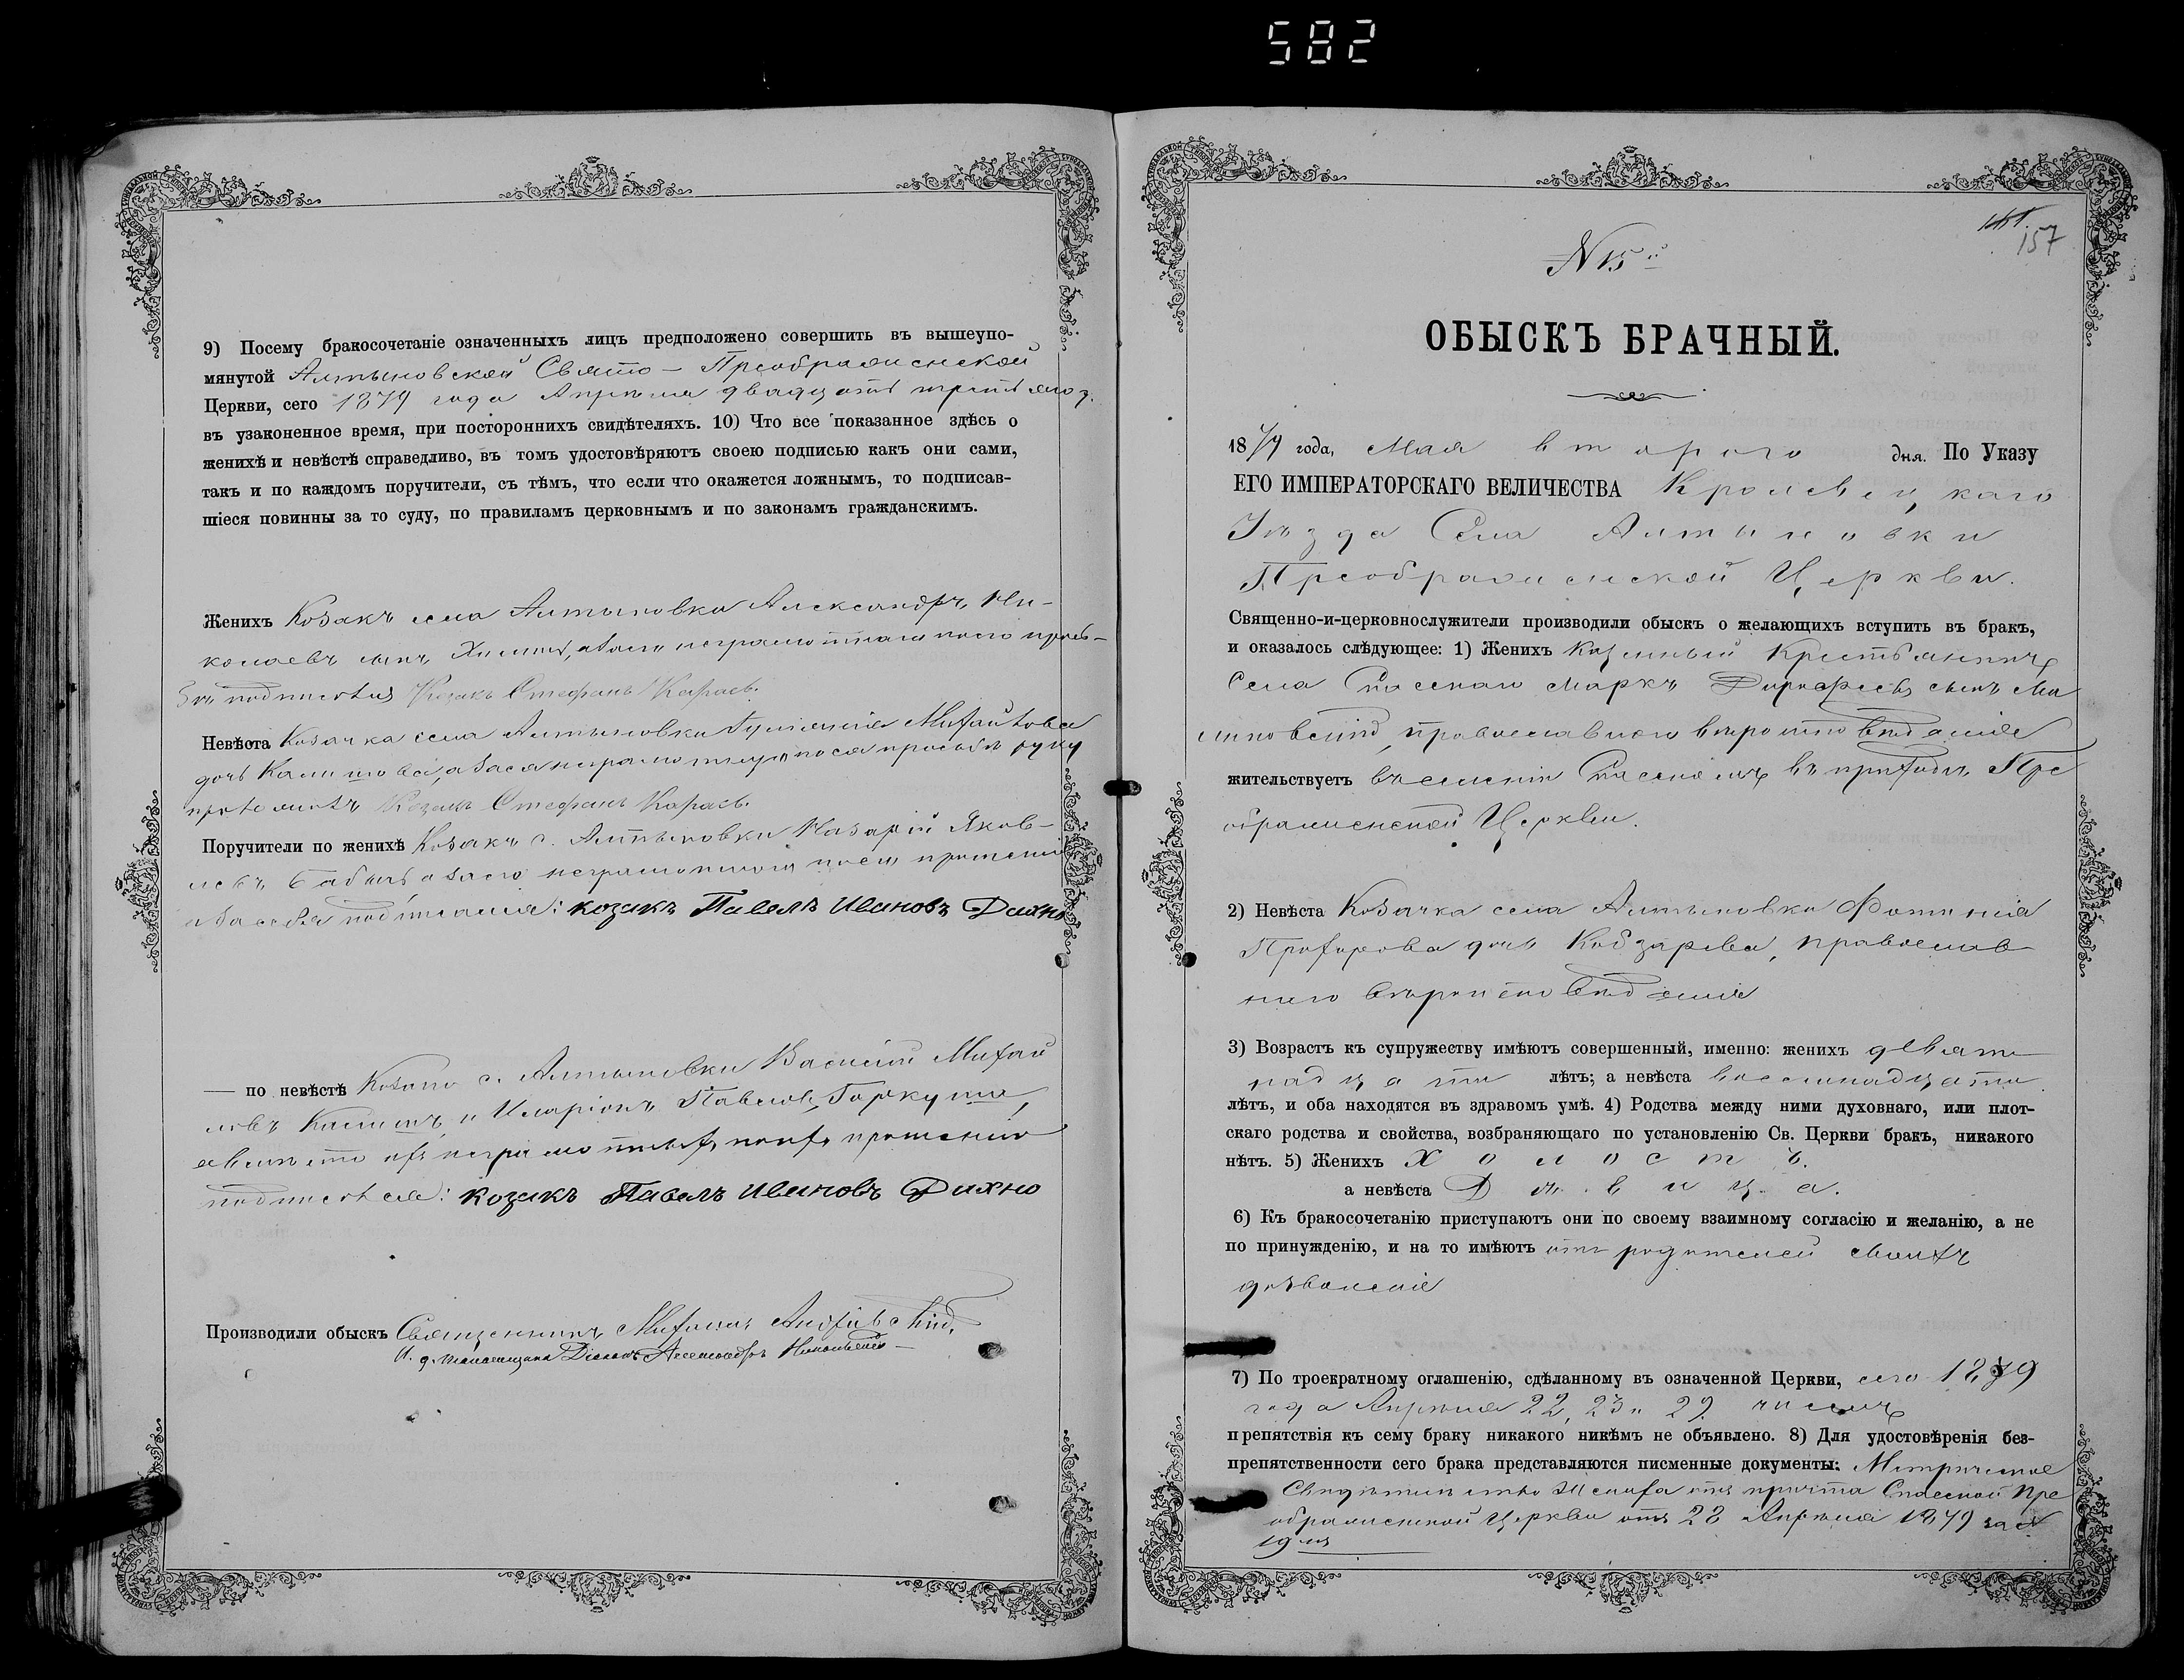 582
9) Посему бракосочетаніе означенныхъ лицъ предположено совершить въ вышеупо-
мянутой Алтыновской Свято - Преображенской
Церкви, сего 1879 года Апрѣля двадцать третьяго д.
въ узаконенное время, при постороннихъ свидѣтеляхъ. 10) Что все показанное здѣсь о
женихѣ и невѣстѣ справедливо, въ томъ удостовѣряютъ своею подписью какъ они сами,
такъ и по каждомъ поручители, съ тѣмъ, что если что окажется ложнымъ, то подписав-
шіеся повинны за то суду, по правиламъ церковнымъ и по законамъ гражданскимъ.
Женихъ Козакъ села Алтыновки Александръ Ни-
колаевъ сынъ неграмотнаго
подписался Козакъ Стефанъ Караев.
Невѣста Козачка села Алтыновки Михайлова
дочь а за ся неграмотную по ея просьбѣ руку
Козакъ Стефанъ Караев.
Поручители по женихѣ Козакъ с. Алтыновки Назарій Яков-
левъ а за его неграмотного
и за себя подписался: козакъ Павелъ Ивановъ Дихно
— по невѣстѣ Козаки с. Алтыновки Василій Михай
ловъ и Иларіонъ Павловъ
неграмотныхъ по ихъ прошенію
подписался: козакъ Павелъ Ивановъ Дихно
Производили обыскъ Священникъ
Діаконъ Александръ
157
N 15й
ОБЫСКЪ БРАЧНЫЙ.
1879 года, Мая второго дня. По Указу
ЕГО ИМПЕРАТОРСКАГО ВЕЛИЧЕСТВА Кролевецкаго
Уѣзда Села Алтыновки
Преображенской Церкви.
Священно-и-церковнослужители производили обыскъ о желающихъ вступить въ бракъ,
и оказалось слѣдующее: 1) Женихъ Казенный Крестьянинъ
Села Спаскаго Маркъ Дорофеевъ сынъ Ма
линовскій, православнаго вѣроисповѣданія
жительствуетъ въ селеніи Спаскомъ въ приходѣ Пре
ображенской Церкви.
2) Невѣста Козачка села Алтыновки Фотинія
Прохорова дочь Кобзарева, православ
наго вѣроисповѣданія
3) Возрастъ къ супружеству имѣютъ совершенный, именно: женихъ девят
надцати лѣтъ; а невѣста восемнадцати
лѣтъ, и оба находятся въ здравомъ умѣ. 4) Родства между ними духовнаго, или плот-
скаго родства и свойства, возбраняющаго по установленію Св. Церкви бракъ, никакого
нѣтъ. 5) Женихъ Холостъ.
а невѣста Дѣвица.
6) Къ бракосочетанію приступаютъ они по своему взаимному согласію и желанію, а не
по принужденію, и на то имѣютъ отъ родителей своихъ
дозволеніе
7) По троекратному оглашенію, сдѣланному въ означенной Церкви, сего 1879
года Апрѣля 22, 23 и 29 числъ
препятствія къ сему браку никакого никѣмъ не объявлено. 8) Для удостовѣренія без-
препятственности сего брака представляются писменные документы: Метрическое
Свидѣтельство Жениха отъ причта Спаской Пре
ображенской Церкви отъ 28 Апрѣля 1879 за N
19мъ